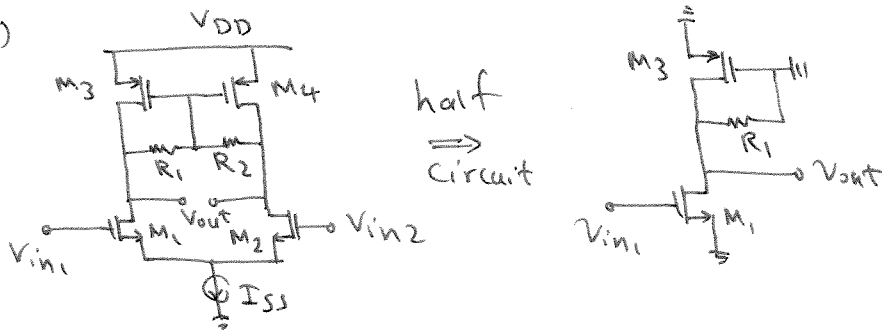 )
VDD
M3
M4
R1
R2
Vout
Vin1
M1
M2
Vin2
ISS
half
⇒
circuit
M3
R1
Vout
Vin1
M1